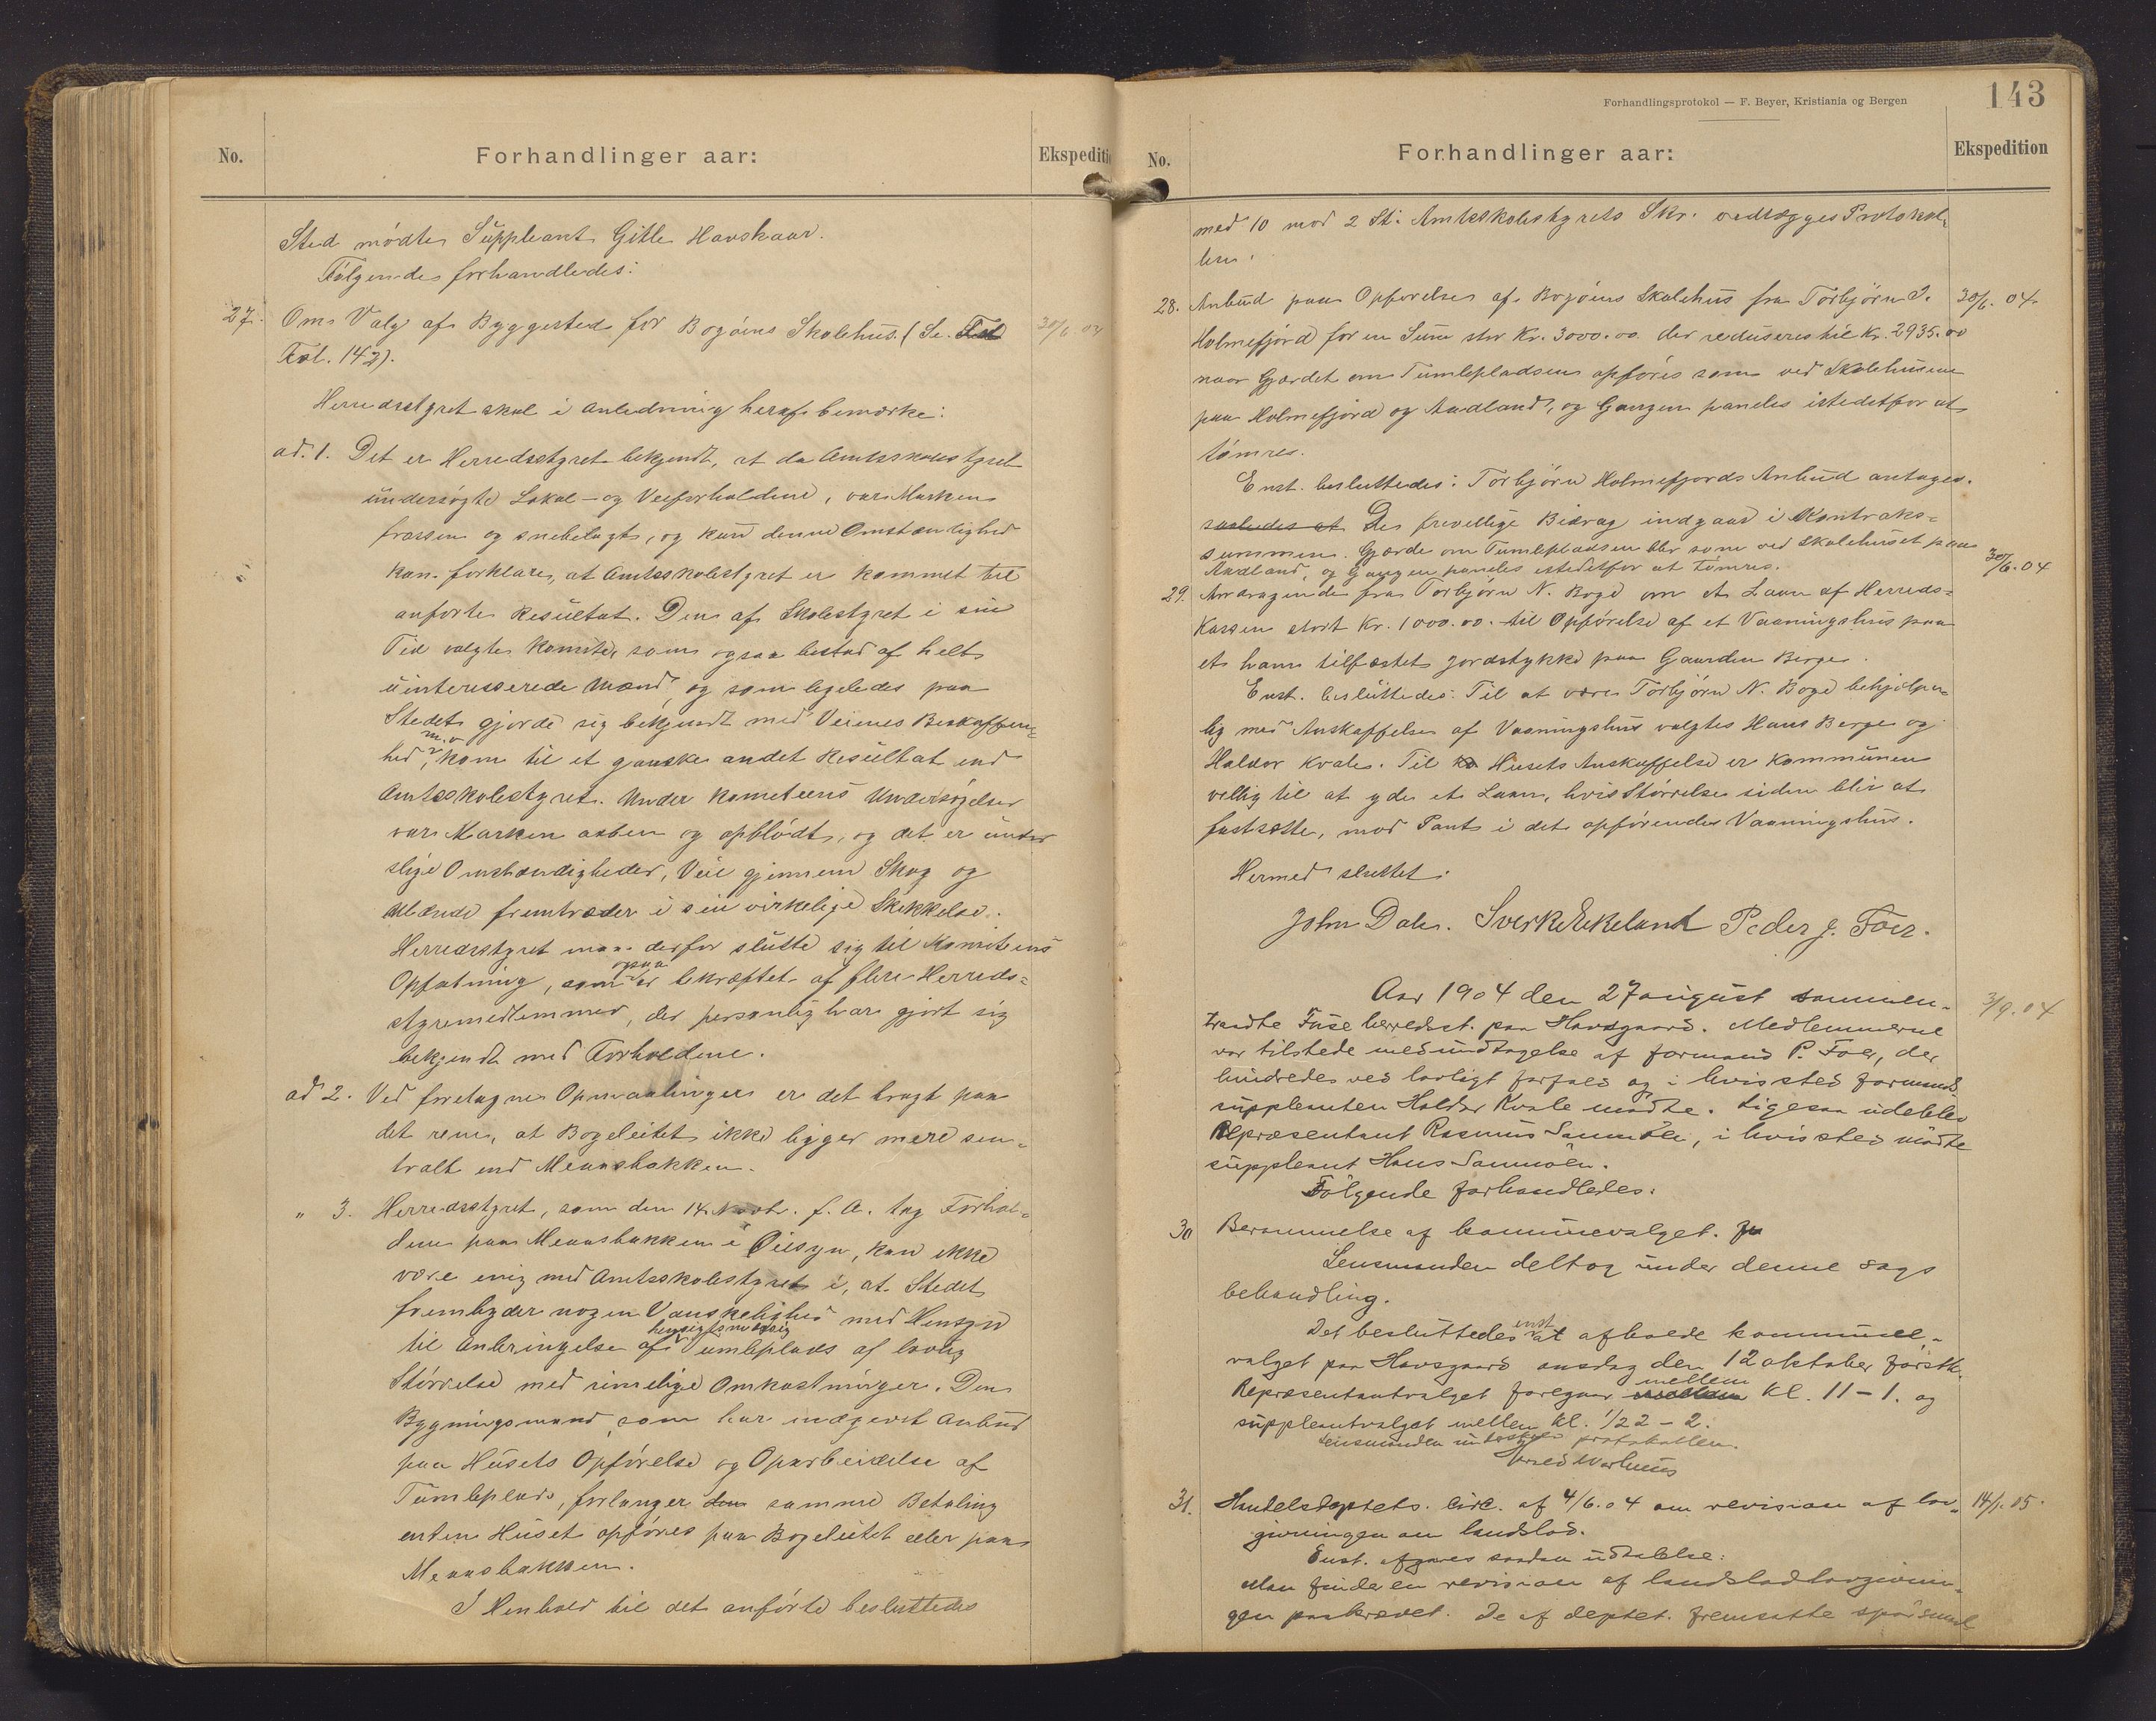 No.
Forhandlinger aar:
Ekspediti
Sted mødte Suppleant Gitle Havskaar.
Følgende forhandledes:
27. Om Valg af Byggested for Bogøens Skolehus. (Se
Fol. 142).
30/6 04
Herredsstyret skal i Anledning heraf bemærke:
ad. 1. Det er Herredsstyret bekjendt, at da Amtsskolestyret
undersøgte Lokal- og Veiforholdene, var Marken
frossen og snebelagt, og kun denne Omstændighed
kan forklare, at Amtsskolestyret er kommet til
anførte Resultat. Den af Skolestyret i sin
Tid valgte Komite, som ogsaa bestod af helt
uinteresserede Mænd og som ligeledes paa
Stedet gjorde sig bekjendt med Veienes Beskaffen-
hed m. v., kom til et ganske andet Resultat end
Amtsskolestyret. Under Komiteens Undersøgelser
var Marken aaben og opblødt, og det er under
slige Omstændigheder, Veie gjennem Skog og
Udlænde fremtræder i sin virkelige Skikkelse.
Herredsstyret maa derfor slutte sig til Komiteens
Opfatning, som ogsaa er bekræftet af flere Herreds-
styremedlemmer, der personlig har gjort sig
bekjendt med Forholdene.
ad 2. Ved foretagne Opmaalinger er det bragt paa
det rene, at Bogeleitet ikke ligger mere sen-
tralt end Meansbakken.
" 3. Herredsstyret, som den 14. Novbr. f. A. tog Forhol-
dene paa Meansbakken i Øiesyn, kan ikke
være enig med Amtsskolestyret i, at Stedet
frembyder nogen Vanskelighed med Hensyn
til Anbringelse af hensigtsmæssig Tumleplads af lovlig
Størrelse med rimelige Omkostninger. Den
Bygningsmand, som har indgivet Anbud
paa Husets Opførelse og Oparbeidelse af
Tumleplads, forlanger den samme Betaling
enten Huset opføres paa Bogeleitet eller paa
Meansbakken.
I Henhold til det anførte besluttedes
143
Forhandlingsprotokol — F. Beyer, Kristiania og Bergen
No.
Forhandlinger aar:
Ekspedition
med 10 mod 2 St: Amtsskolestyrets Skr. vedlægges Protokol-
len.
28. Anbud paa Opførelse af Bogøens Skolehus fra Torbjørn J. 30/6. 04
Holmefjord for en Sum stor Kr. 3000.00 der reduseres til Kr. 2935.00
naar Gjærdet om Tumlepladsen opføres som ved Skolehusene
paa Holmefjord og Aadland, og Gangen paneles istedetfor at
tømres.
Enst. besluttedes: Torbjørn Holmefjords Anbud antages.
saaledes at De frivillige Bidrag indgaar i Kontrakt-
summen. Gjærde om Tumlepladsen blir som ved Skolehuset paa
Aadland, og Gangen paneles istedetfor at tømres. 30/6. 04
29. Andragende fra Torbjørn N. Boge om et Laan af Herreds-
Kassen stort Kr. 1000.00. til Opførelse af et Vaaningshus paa
et ham tilfæstet Jordstykke paa Gaarden Berge.
Enst. besluttedes: Til at være Torbjørn N. Boge behjælpe-
lig med Anskaffelse af Vaaningshus valgtes Hans Berge og
Haldor Kvale. Til Husets Anskaffelse er Kommunen
villig til at yde et Laan, hvis Størrelse siden blir at
fastsætte, mod Pant i det opførende Vaaningshus.
Hermed sluttet.
John Dale. Sverke Ekeland Peder J. Foer.
Aar 1904 den 27 august sammen- 3/9. 04
traadte Fuse herredsst. paa Havsgaard. Medlemmerne
var tilstede med undtagelse af formand P. Foer, der
hindredes ved lovligt forfald og i hvis sted formands-
suppleanten Haldor Kvale mødte. Ligesaa udeblev
Repræsentant Rasmus Samnøen, i hvis sted mødte
suppleant Hans Samnøen.
Følgende forhandledes:
30 Berammelse af kommunevalget.
Lensmanden deltog under denne sags
behandling.
Det besluttedes enst at afholde kommune-
valget paa Havsgaard onsdag den 12 oktober førstk.
Repræsentantvalget foregaar mellem kl. 11 - 1. og
suppleantvalget mellem kl. 1/2 2 - 2.
Lensmanden underskrev protokollen.
31. Handelsdeptets. circ. af 4/6. 04 om revision af lov- 14/1. 05.
givningen om landslod.
Enst. afgaves saadan udtalelse:
Man finder en revision af landslodlovgivnin-
gen paakrævet. De af deptet. fremsatte spørsmaal